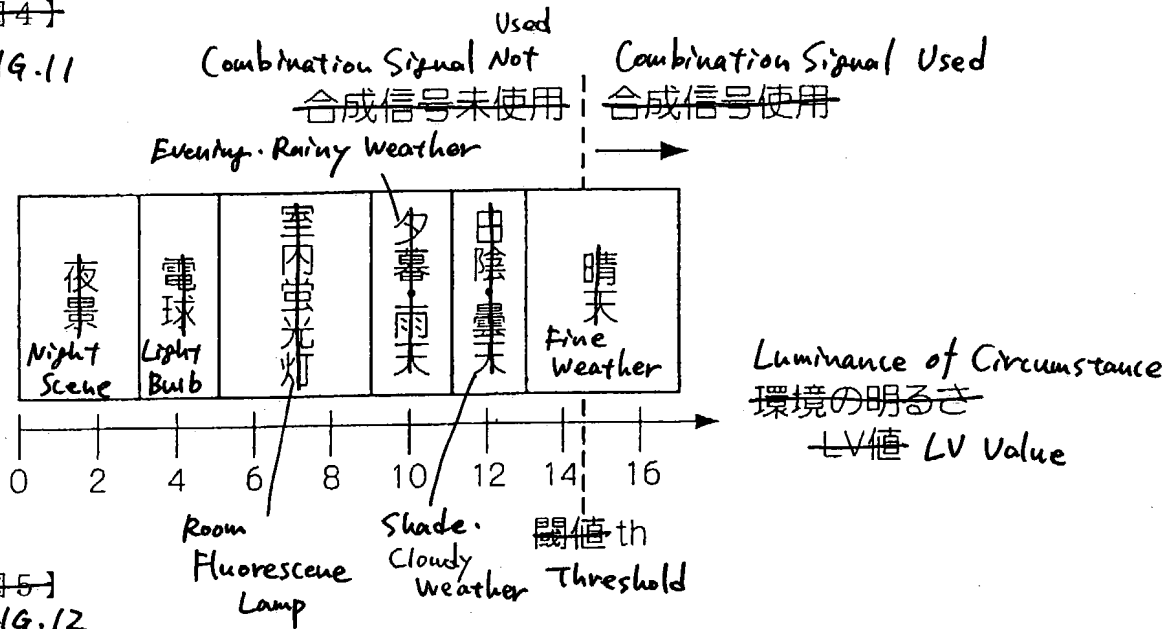 4】
IG.11
Used
Combination Signal Not
Combination Signal Used
合成信号未使用
合成信号使用
Evening・Rainy Weather
夜景
Night
Scene
電球
Light
Bulb
室内蛍光灯
夕暮・雨天
日陰・曇天
晴天
Fine
Weather
Luminance of Circumstance
環境の明るさ
LV値 LV Value
0 2 4 6 8 10 12 14 16
Room
Fluorescene
Lamp
Shade・
Cloudy
Weather
閾値 th
Threshold
5】
IG.12